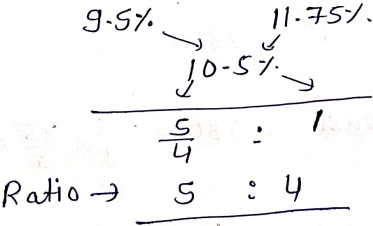 9.5% 11.75%.
10.5%
5/4 : 1
Ratio → 5 : 4